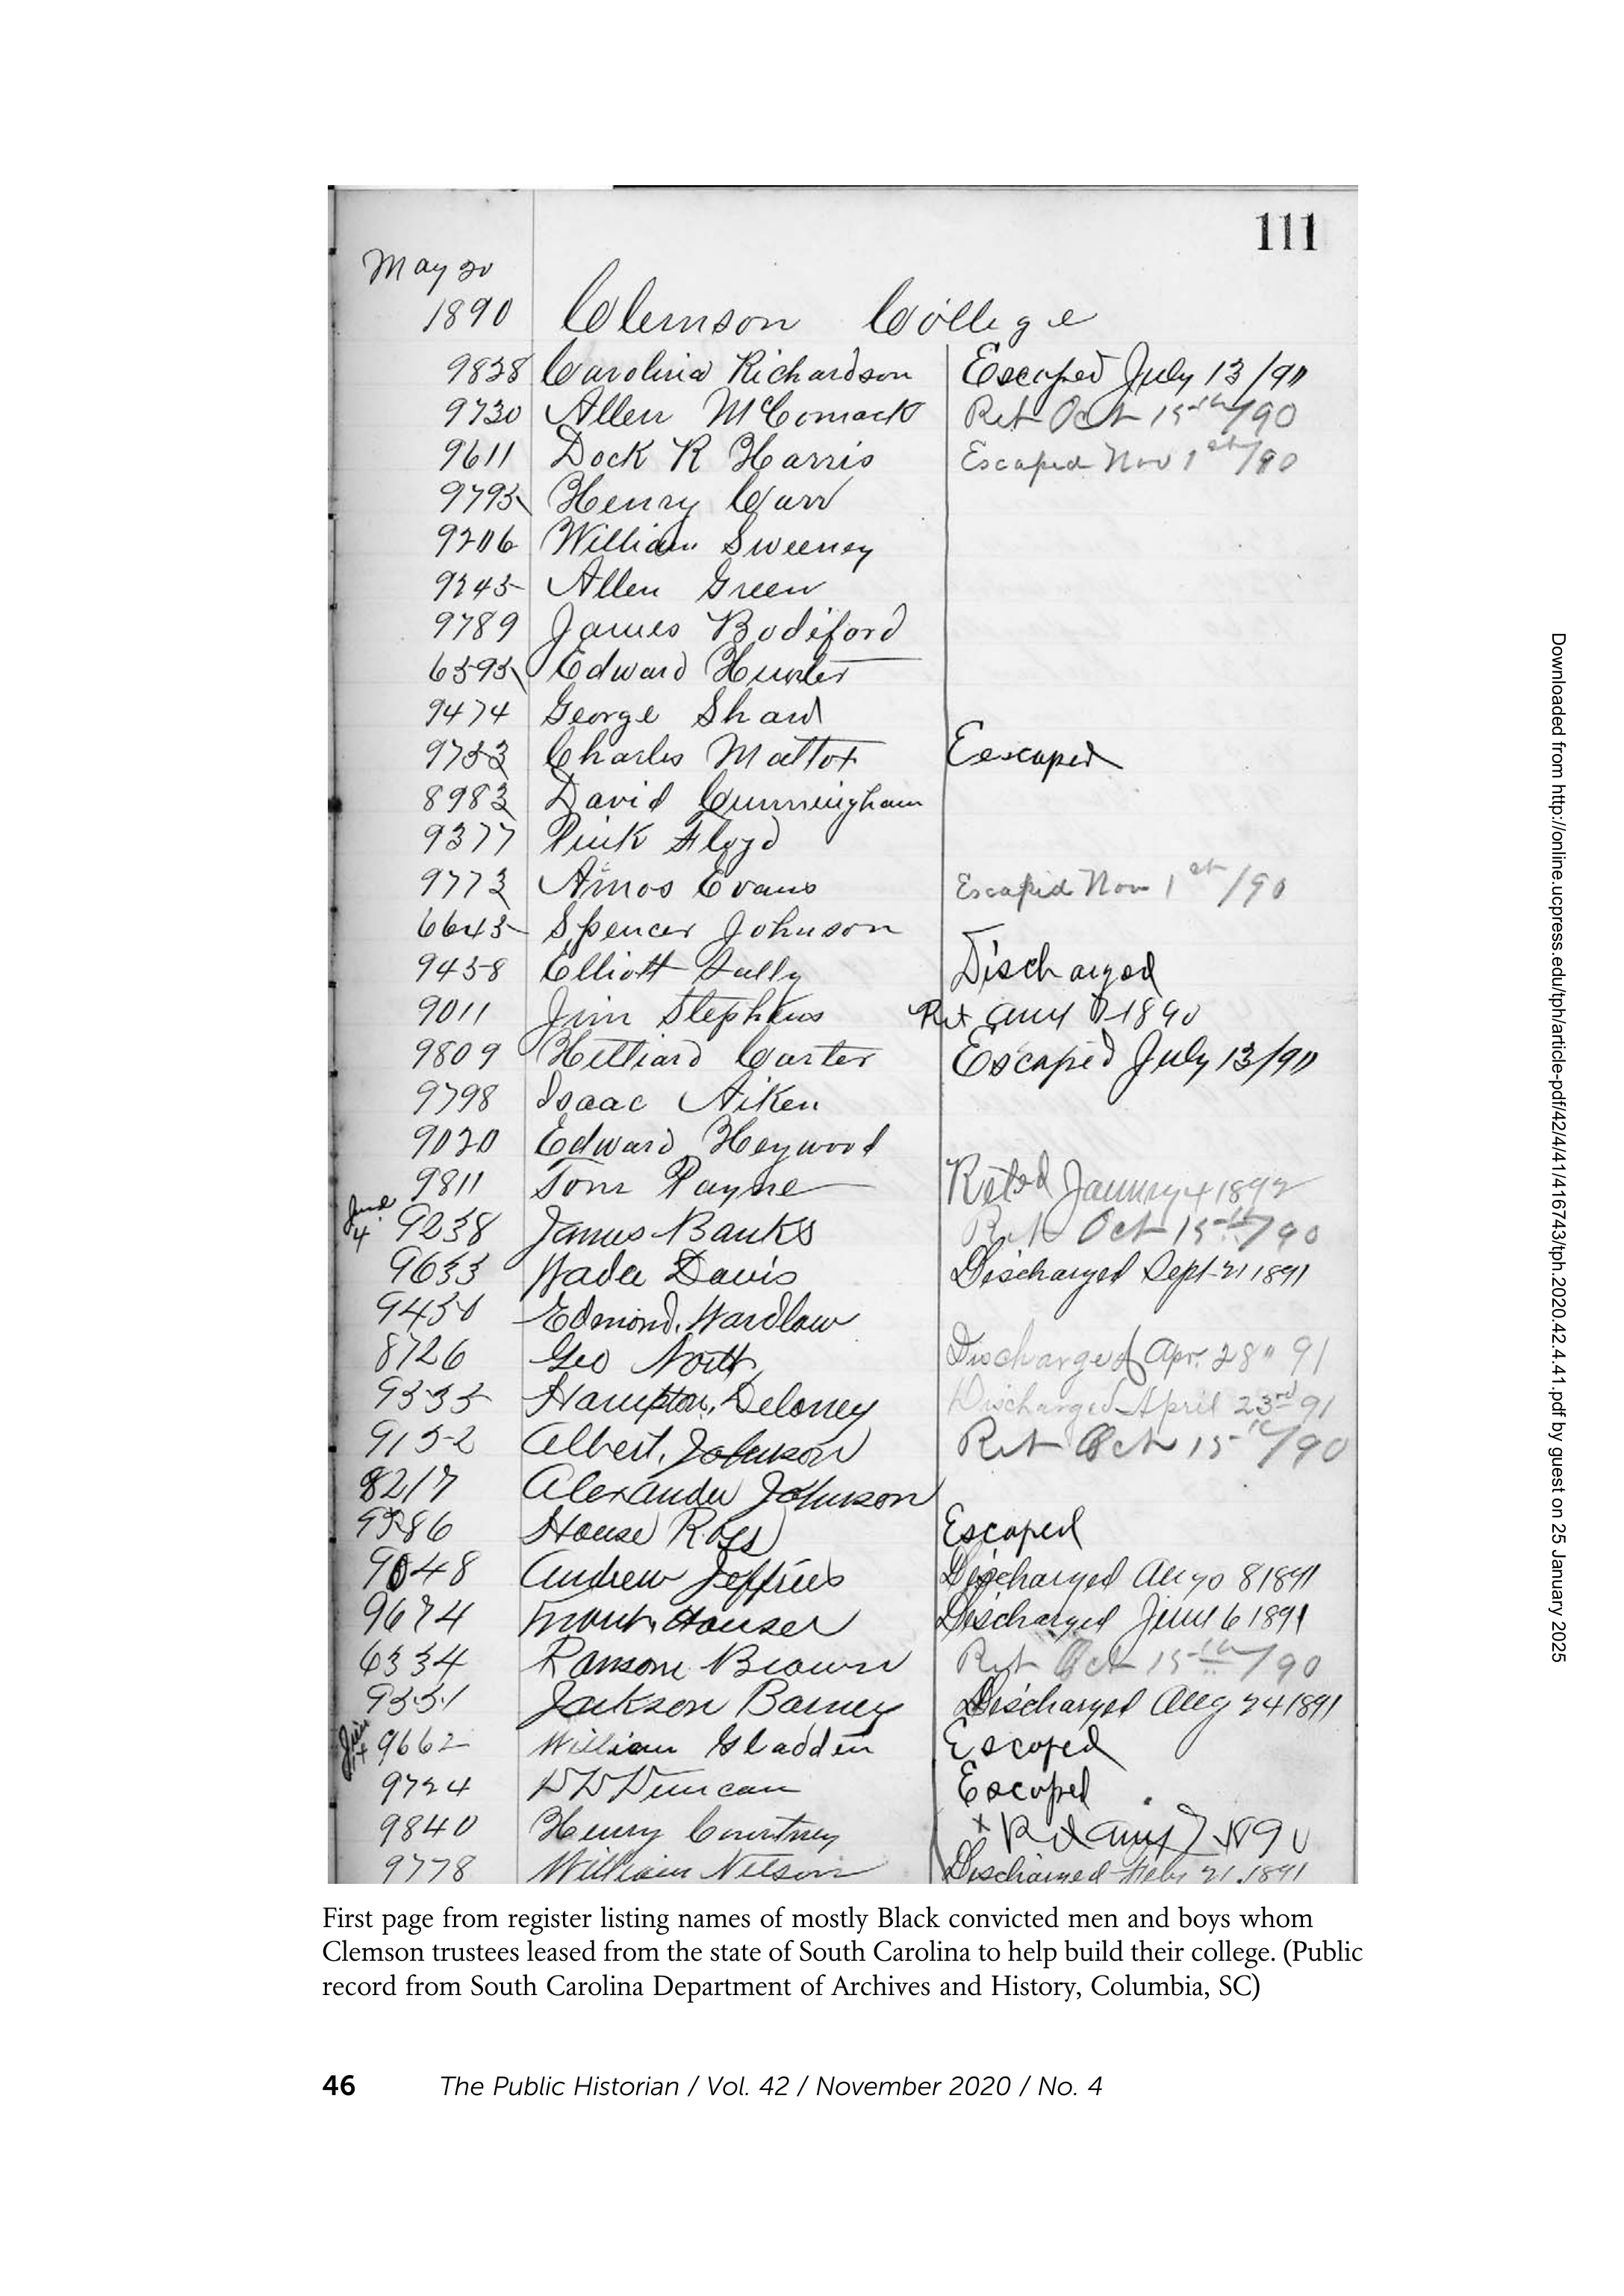 111
May 20
1890 Clemson College
9828 Carolina Richardson Escaped July 13/90
9730 Allen McComack Ret Oct 15th/90
9611 Dock R Harris Escaped Nov 1st/90
9795 Henry Carr
9206 William Sweeney
9245 Allen Green
9789 James Bodiford
6595 Edward Hunter
9474 George Shaw
9753 Charles Mattox Eescaped
8983 David Cunningham
9377 Pink Floyd
9773 Amos Evans Escaped Nov 1st/90
6645 Spencer Johnson
9458 Elliott Discharged
9011 Jim Stephens Ret 1890
9809 Hilliard Carter Escaped July 13/90
9798 Isaac Aiken
9020 Edward Heywood
9811 Tom Payne January 4 1892
June 4 9238 James Banks Ret Oct 15th/90
9633 Wade Davis Discharged Sept 21 1891
9450 Edmond, Wardlaw
8726 Geo North, Discharged Apr. 28" 91
9335 Hampton, Deloney Discharged April 23rd 91
9152 Albert, Johnson Ret Oct 15th/90
8217 Alexander Johnson
House Ross Escaped
9048 Andrew Jeffries Discharged Aug 8 1891
9674 Frank, Houser Discharged June 6 1891
6334 Ransom Brown Ret Oct 15th/90
9351 Jackson Barney Discharged Aug 24 1891
9662 William Gladden Escaped
9724 Duncan Escaped
9840 Henry Courtney x Ret Aug 7 1890
9778 William Nelson Discharged Feby 21, 1891
First page from register listing names of mostly Black convicted men and boys whom
Clemson trustees leased from the state of South Carolina to help build their college. (Public
record from South Carolina Department of Archives and History, Columbia, SC)
46 The Public Historian / Vol. 42 / November 2020 / No. 4
Downloaded from http://online.ucpress.edu/tph/article-pdf/42/4/41/416743/tph.2020.42.4.41.pdf by guest on 25 January 2025